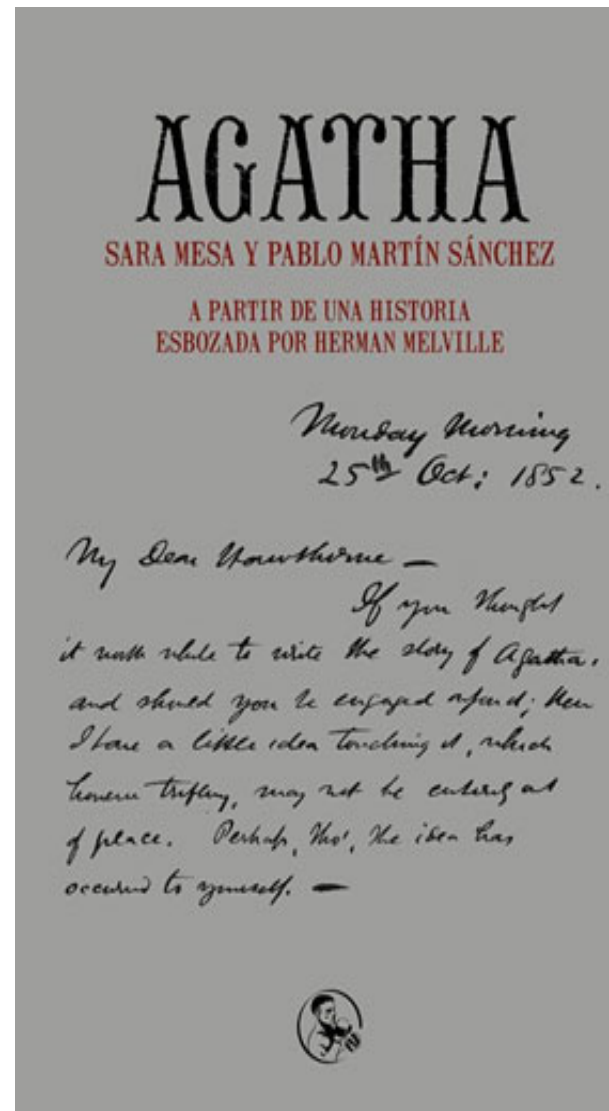 AGATHA
SARA MESA Y PABLO MARTÍN SÁNCHEZ
A PARTIR DE UNA HISTORIA
ESBOZADA POR HERMAN MELVILLE
Monday Morning
25th Oct: 1852.
My Dear Hawthorne —
If you thought
it worth while to write the story of Agatha,
and should you be engaged upon it; then
I have a little idea touching it, which
however trifling, may not be entirely out
of place. Perhaps, tho', the idea has
occurred to yourself. —